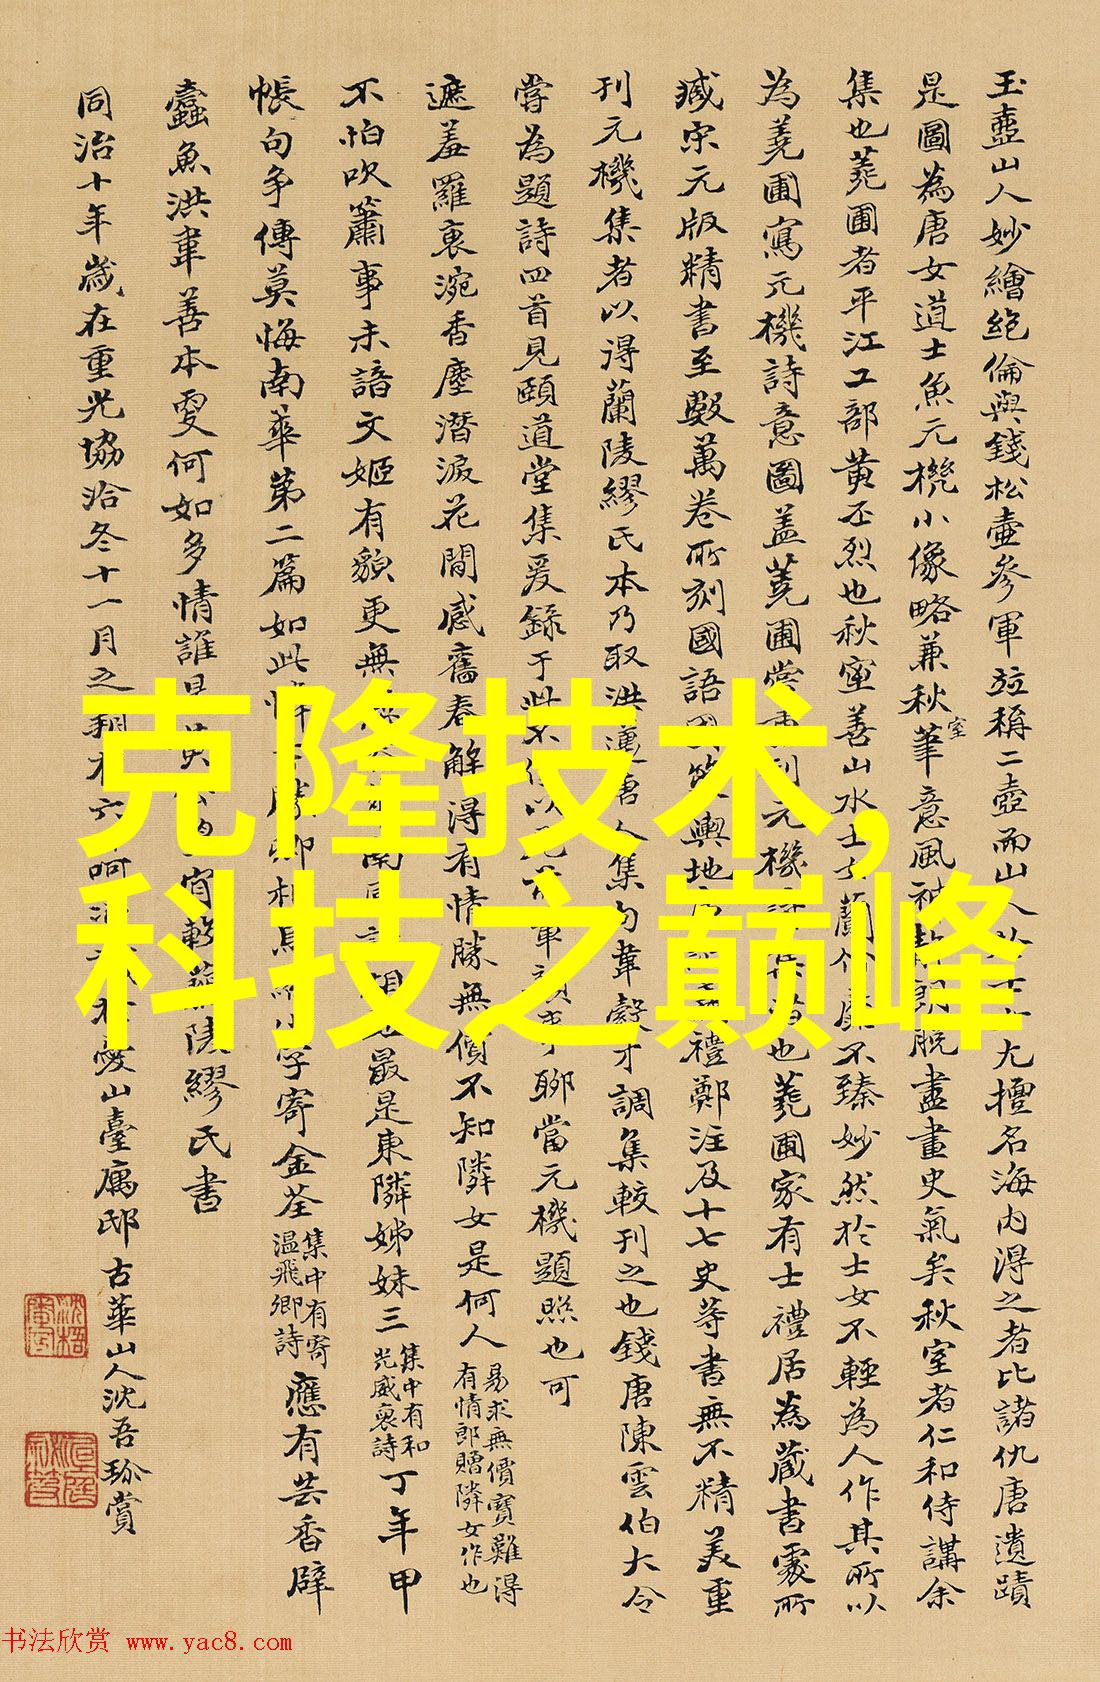 玉壺山人妙繪絕倫與錢松壺參軍竝稱二壺而山人尤擅名海內得之者比諸仇唐遺蹟
是圖為唐女道士魚元機小像略兼秋室筆意風神脫盡畫史氣矣秋室者仁和侍講余
集也蕘圃者平江工部黃丕烈也秋室善山水士女蘭竹靡不臻妙然於士女不輕為人作其所以
為蕘圃寫元機詩意圖蓋蕘圃嘗元機也蕘圃家有士禮居為藏書處所
臧宋元版精書至數萬卷所刻國語國策輿地禮鄭注及十七史等書無不精美重
刊元機集者以得蘭陵繆氏本乃取洪邁唐人集句韋縠才調集較刊之也錢唐陳雲伯大令
嘗為題詩四首見頤道堂集爰錄于此聊當元機題照也可
遮羞羅裛涴香塵潛淚花閒感舊春解得有情勝無價不知隣女是何人易求無價寶難得有情郎贈隣女作也
不怕吹簫事未諳文姬有貌更無最是東隣姊妹三集中有和光威裛詩丁年甲
帳句爭傳莫悔南華第二篇如此字寄金荃集中有寄溫飛卿詩應有芸香辟
蠹魚洪韋善本更何如多情誰是蘭陵繆氏書
同治十年歲在重光協洽冬十一月之朔山臺寓邸古華山人沈吾珍賞
克隆技术，
科技之巅峰
书法欣赏 www.yac8.com